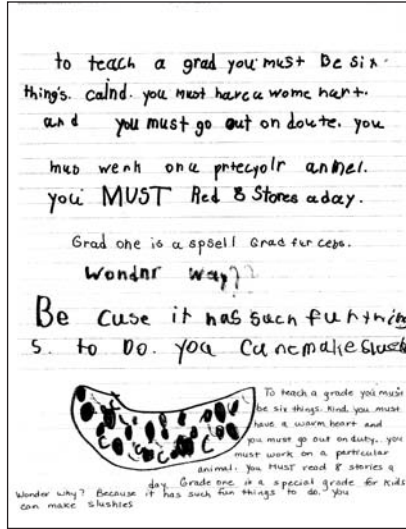 to teach a grad you must Be six
thing's. caind. you must have a wome hart.
and you must go out on doute. you
mus werk on a prtecyolr anmel.
you MUST Red 8 Stores a day.
Grad one is a spsell Grad fur cebs.
Wondnr way??
Be Cuse it has such fun thing
s. to Do. you Can cmake slush
To teach a grade you must
be six things. Kind. you must
have a warm heart and
you must go out on duty. you
must work on a particular
animal. you MUST read 8 stories a
day. Grade one is a special grade for kids
Wonder why? Because it has such fun things to do. you
can make slushies